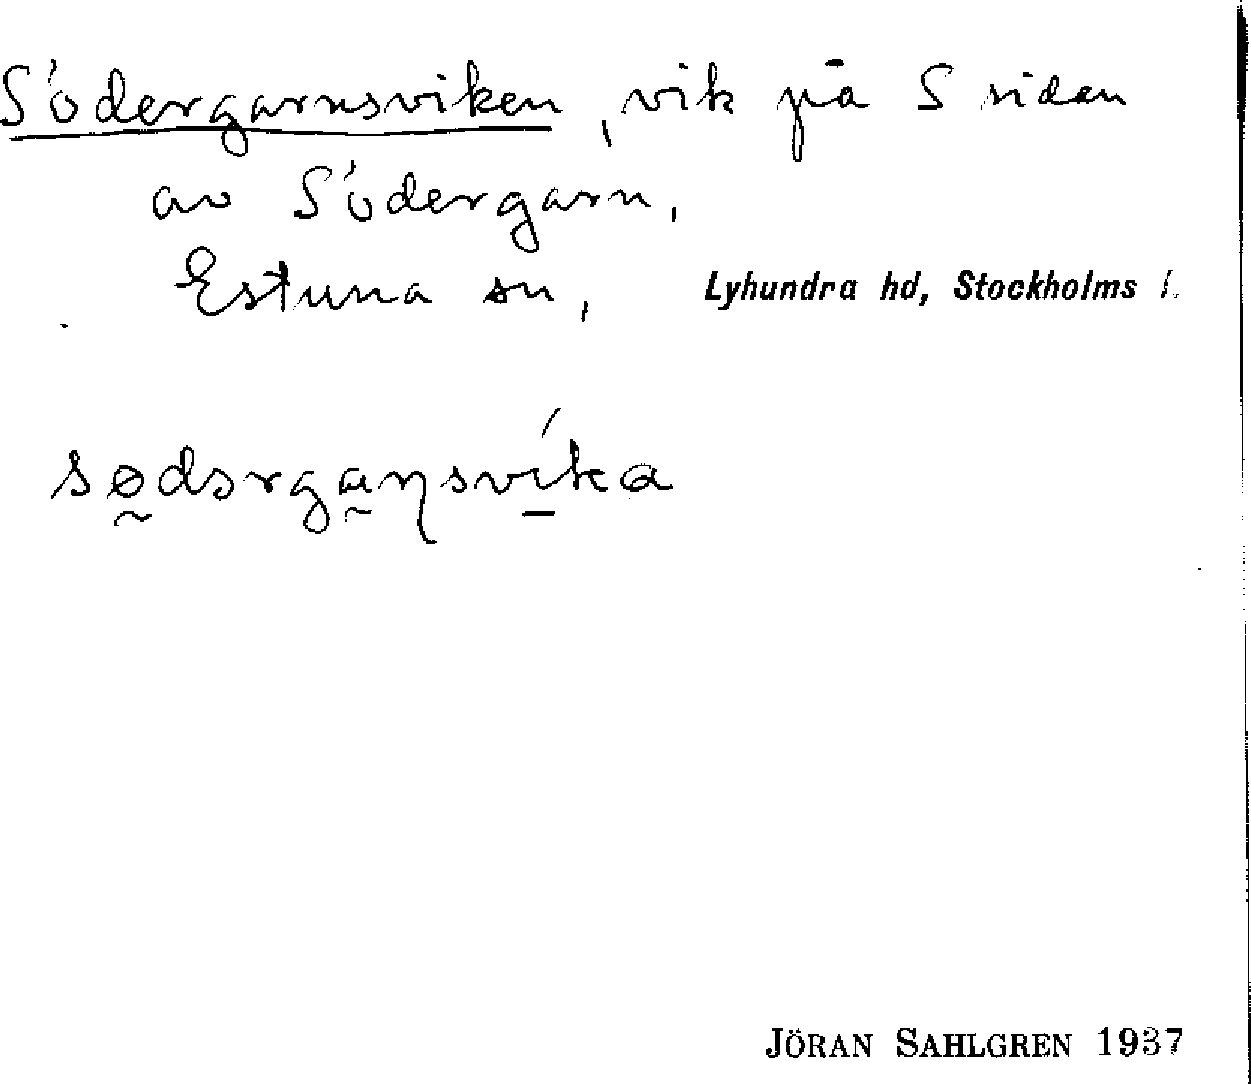 Södergarnsviken, vik på S sidan
av Södergarn,
Estuna sn, Lyhundra hd, Stockholms l.
sødərgaɳsvíka
JÖRAN SAHLGREN 1937